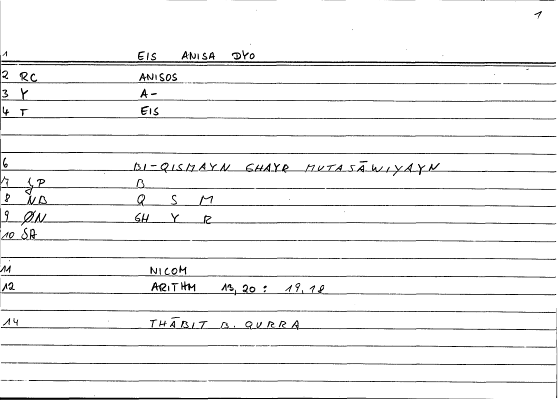 1
1 EIS ANISA DYO
2 RC ANISOS
3 Y A-
4 T EIS
6 BI-QISMAYN GHAYR MUTASĀWIYAYN
7 ȷP B
8 ND Q S M
9 ØN GH Y R
10 SA
11 NICOM
12 ARITHM 13,20 : 19,18
14 THĀBIT B. QURRA